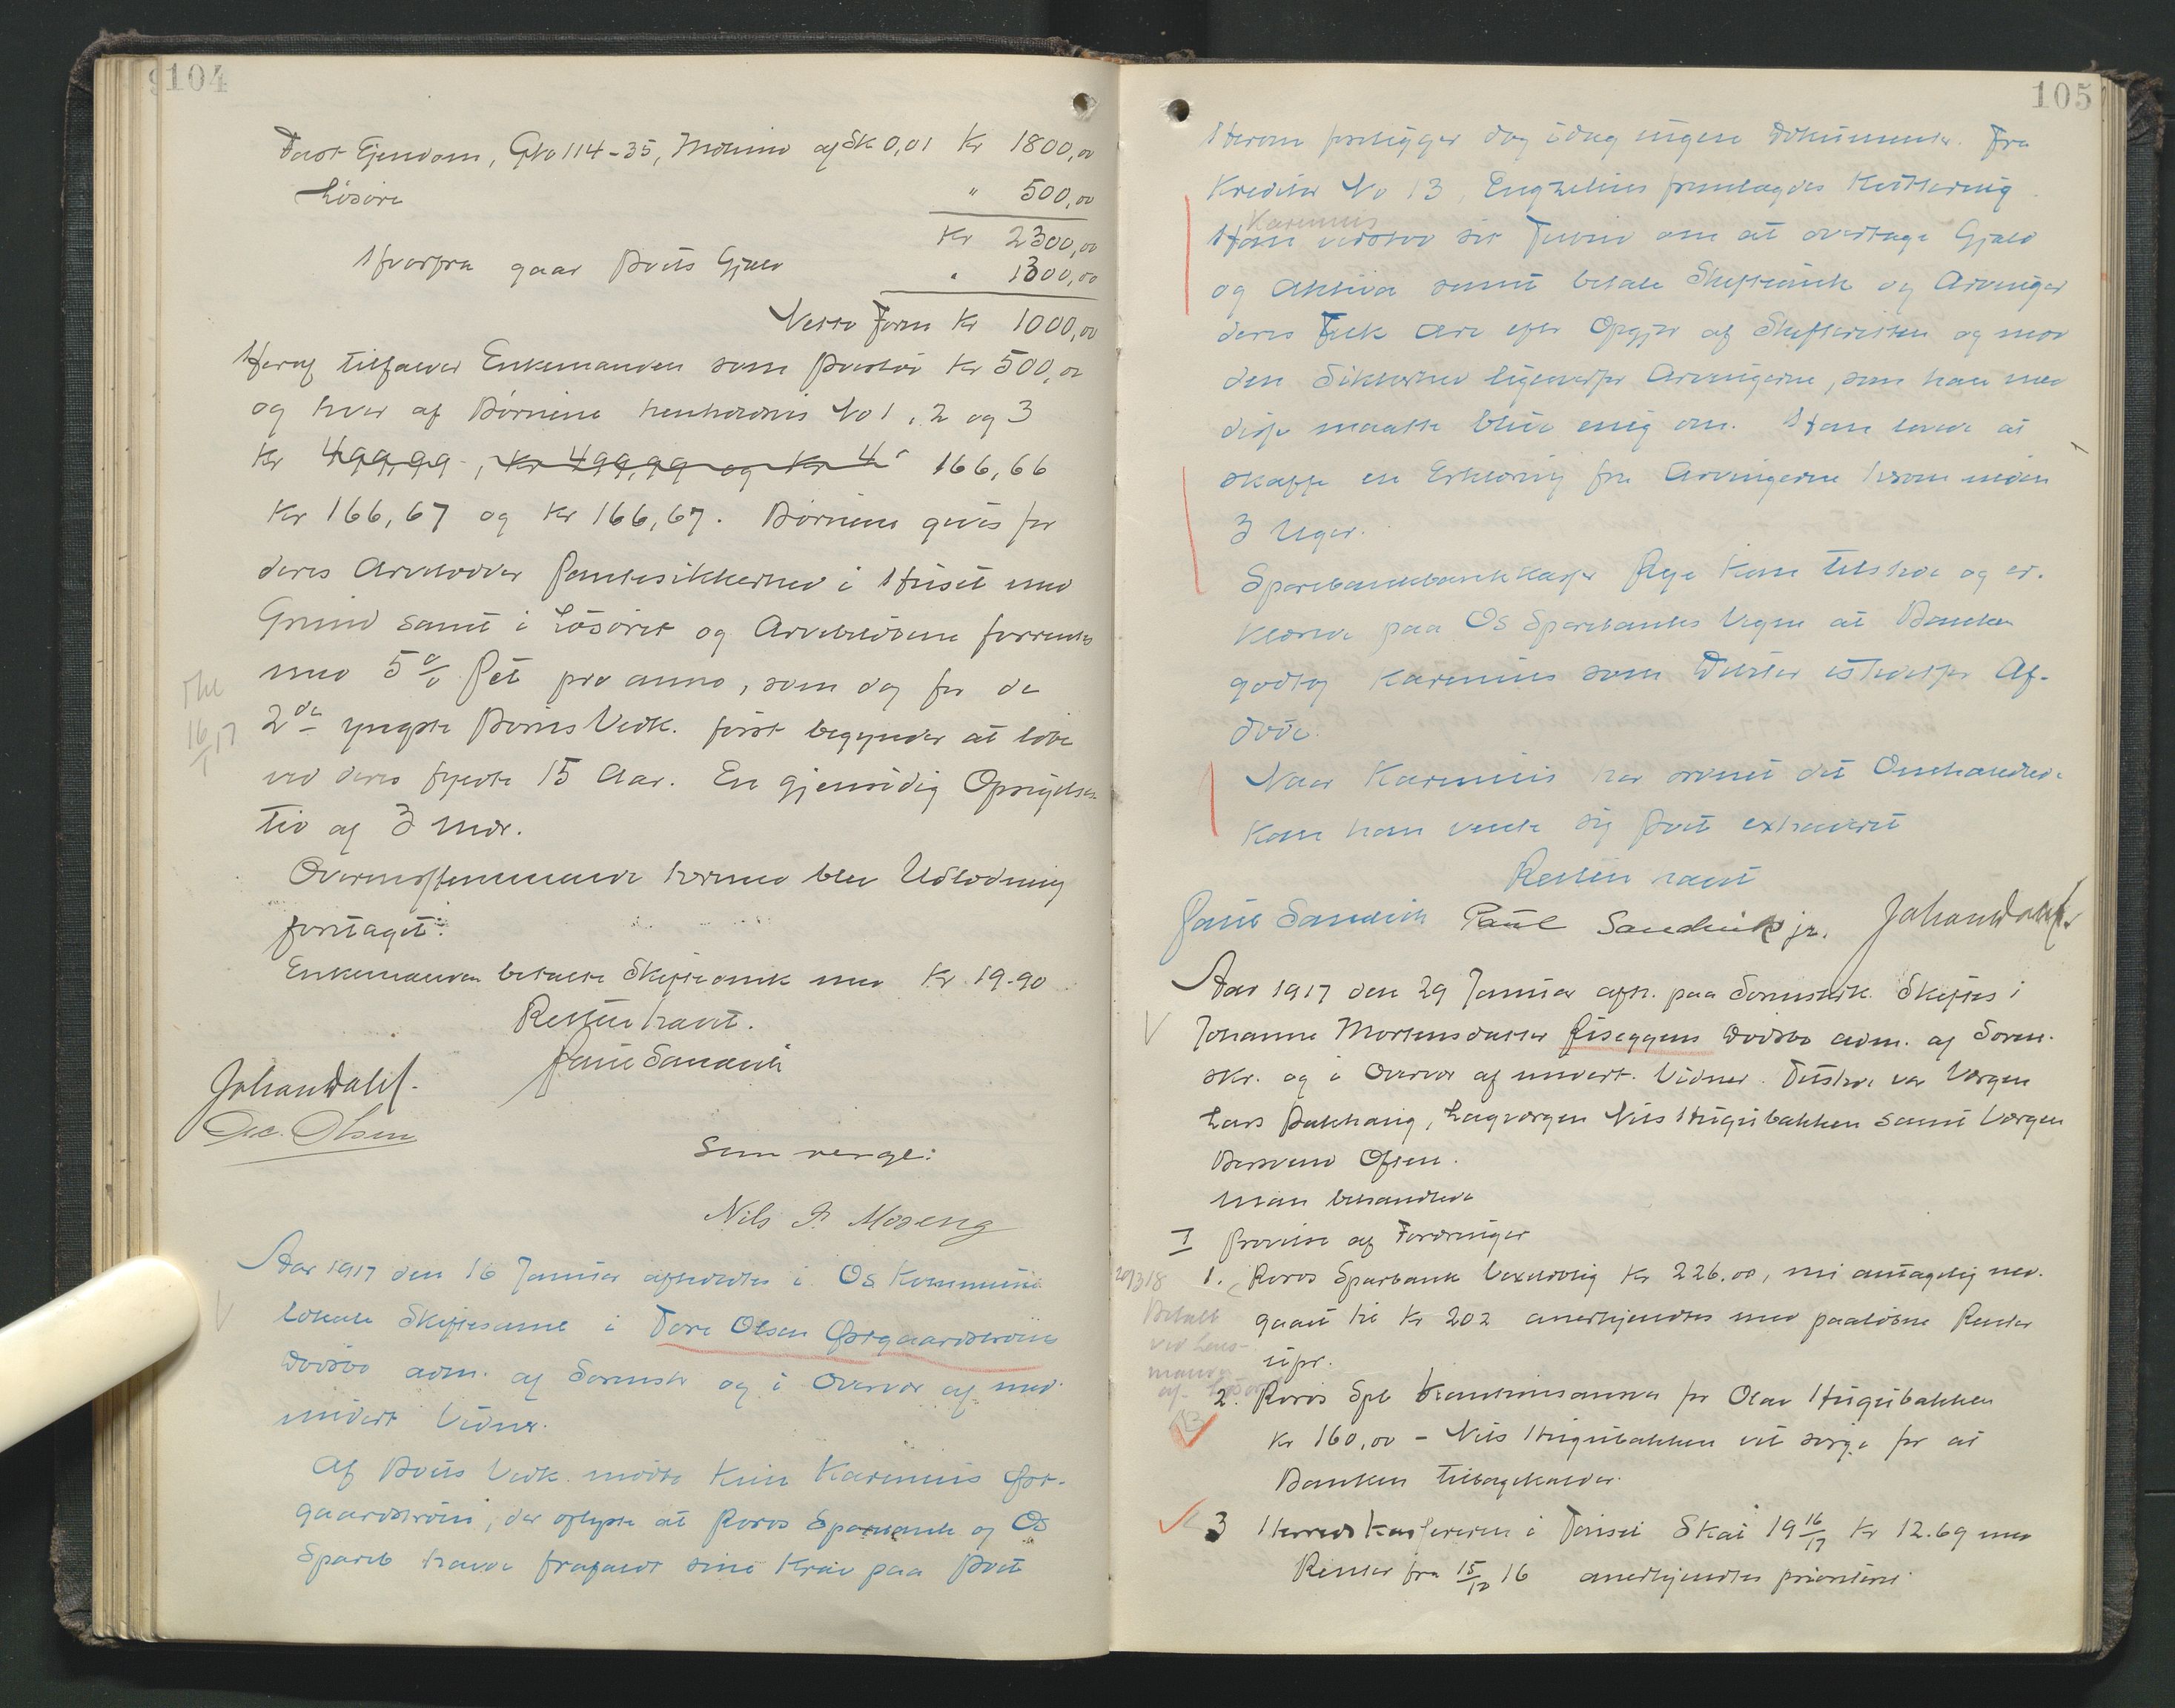 104
Fast Ejendom, Gno 114-35, Molund af Sk 0,01 Kr 1800,00
Løsøre " 500,00
Kr 2300,00
Hvorfra gaar Boets Gjæld " 1300,00
Netto Form Kr 1000,00
Heraf tilfalder Enkemanden som Boslod Kr 500,00
og hver af Børnene henholdsvis No 1, 2 og 3
Kr 499,99, Kr 499,99 og Kr 4 166,66
Kr 166,67 og Kr 166,67. Børnene gives for
deres Arvelodder Pantesikkerhed i Huset med
Grund samt i Løsøret og Arvelodderne forrentes
med 5 % Pct pro anno, som dog for de
2de yngste Børns Vedk. først begynder at løbe
ved deres fyldte 15 Aar. En gjensidig Opsigelses-
tid af 3 Mdr.
Overensstemmende hermed blev Udlodning
foretaget.
Enkemanden betalte Skifteomk med Kr 19.90
Retten hævet.
Paul Sandvik
Johan Dahl.
Ole. Olsen
Som verge:
Nils P. Moseng
16/1 17
Aar 1917 den 16 Januar afholdtes i Os Kommune
lokale Skiftesaml i Tore Olsen Østgaardstrøens
Dødsbo adm. af Sorenskr og i Overvær af med
undert Vidner.
Af Boets Vedk. mødte kun Karenius Øst-
gaardstrøen, der oplyste at Røros Sparebank og Os
Spareb havde frafaldt sine Krav paa Boet
105
Herom foreligger dog idag ingen Dokumenter. Fra
Kreditor No 13, Engzelius fremlagdes Kvittering.
Karenius
Han vedstod sit Tilbud om at overtage Gjæld
og Aktiva samt betale Skifteomk og Arvinger
deres Fulde Arv efter Opgjør af Skifteretten og mod
den Sikkerhed ligeoverfor Arvingerne, som han med
disse maatte blive enig om. Han lovede at
skaffe en Erklæring fra Arvingerne herom inden
3 Uger.
Sparebankkasser Rye kom tilstede og er-
klærede paa Os Sparebanks Vegne at Banken
godtog Karenius som Debitor istedetfor Af-
døde.
Naar Karenius har ordnet det Omhandlede
kan han vente sig Boet extraderet
Retten hævet
Paul Sandvik Paul Sandvik jr. Johan Dahl.
Aar 1917 den 29 Januar afh. paa Sorenskrk. Skiftes i
Johanne Mortensdatter Riseggens Dødsbo adm. af Soren-
skr. og i Overvær af undert. Vidner. Tilstede var Værgen
Lars Bakhaug, Lagværgen Nils Hugubakken samt Værgen
Bersvend Olsen.
Man behandlede
I Prøvelse af Fordringer
1. Røros Sparbank Vexelobblig Kr 226.00, nu antagelig ned-
gaaet til Kr 202 anerkjendtes med paaløbne Renter
upr.
20/3 18
Betalt
ved Lens-
mand
2. Røros Spb Kautionsansvar for Olav Hugubakken
Kr 160,00 - Nils Hugubakken vil sørge for at
Banken tilbagekalder.
3 Herredskassereren i Tønset Skat 19 16/17 Kr 12.69 med
Renter fra 15/12 16 anerkjendtes prioriteret